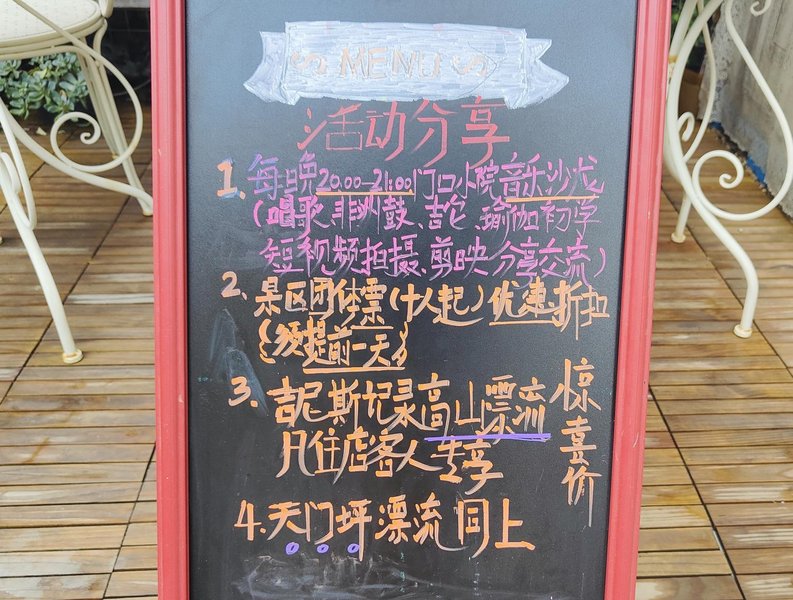 MENU
活动分享
1. 每晚20:00-21:00门口小院音乐沙龙
(唱歌、非洲鼓、吉他、瑜伽初学
短视频拍摄、剪映分享交流)
2. 景区团体票(十人起)优惠折扣
(须提前一天)
3. 吉尼斯记录高山漂流
凡住店客人专享
惊喜价
4. 天门坪漂流同上